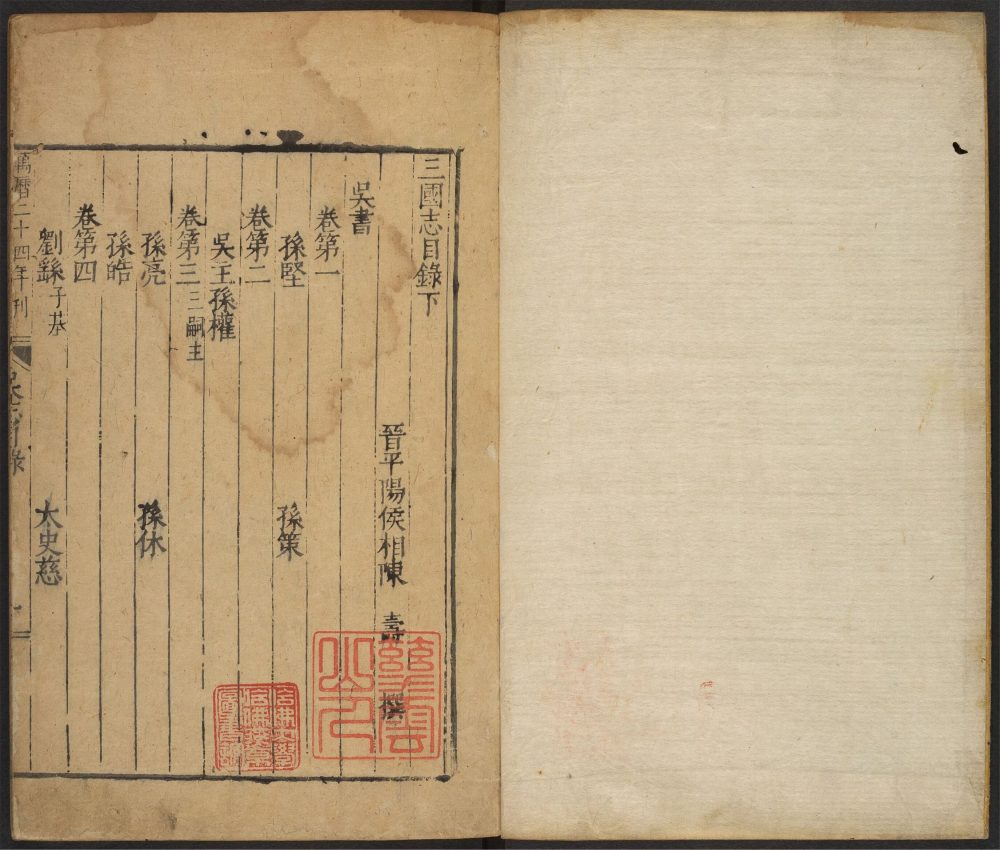 三國志目錄下
晉平陽侯相陳 壽 撰
吳書
卷第一
孫堅 孫策
卷第二
吳主孫權
卷第三 三嗣主
孫亮 孫休
孫皓
卷第四
劉繇 子基 太史慈
萬曆二十四年刊 吳志目錄 一